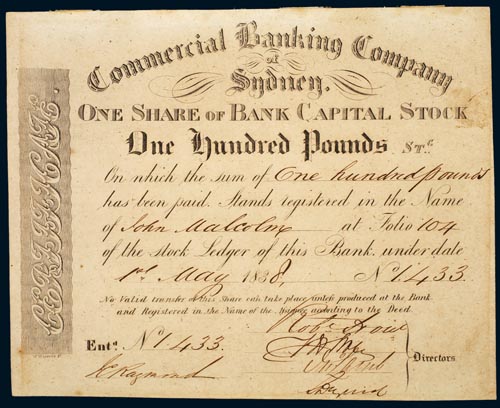 Commercial Banking Company
of
Sydney.
ONE SHARE OF BANK CAPITAL STOCK
One Hundred Pounds STG
On which the sum of One hundred pounds
has been paid. Stands registered in the Name
of John Malcolm at Folio 104
of the stock Ledger of this Bank, under date
1st May 1838. No 1433
No Valid transfer of this Share can take place unless produced at the Bank
and Registered in the Name of the according to the Deed.
Entd. No 1433.
Directors
CERTIFICATE